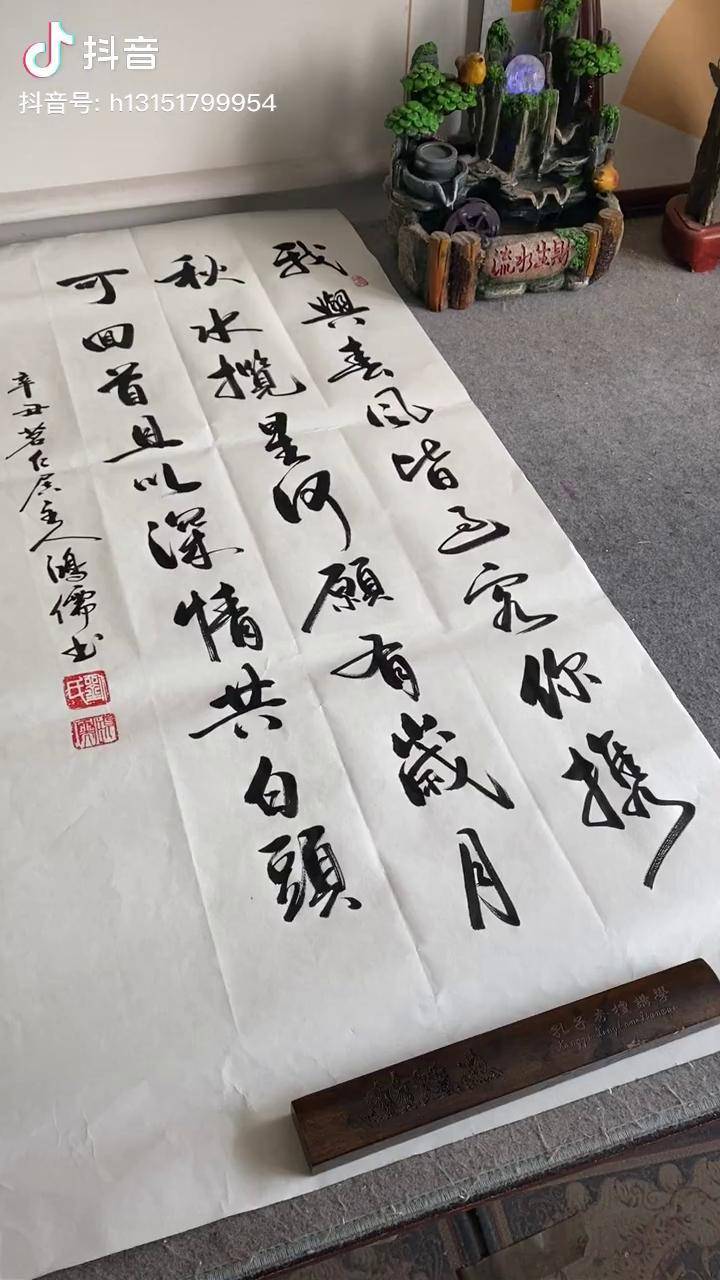 抖音
抖音号: h13151799954
流水生財
我與春风皆过客你携
秋水揽星河願有歲月
可回首且以深情共白頭
辛丑茗仁居主人鴻儒书
孔子杏壇講學